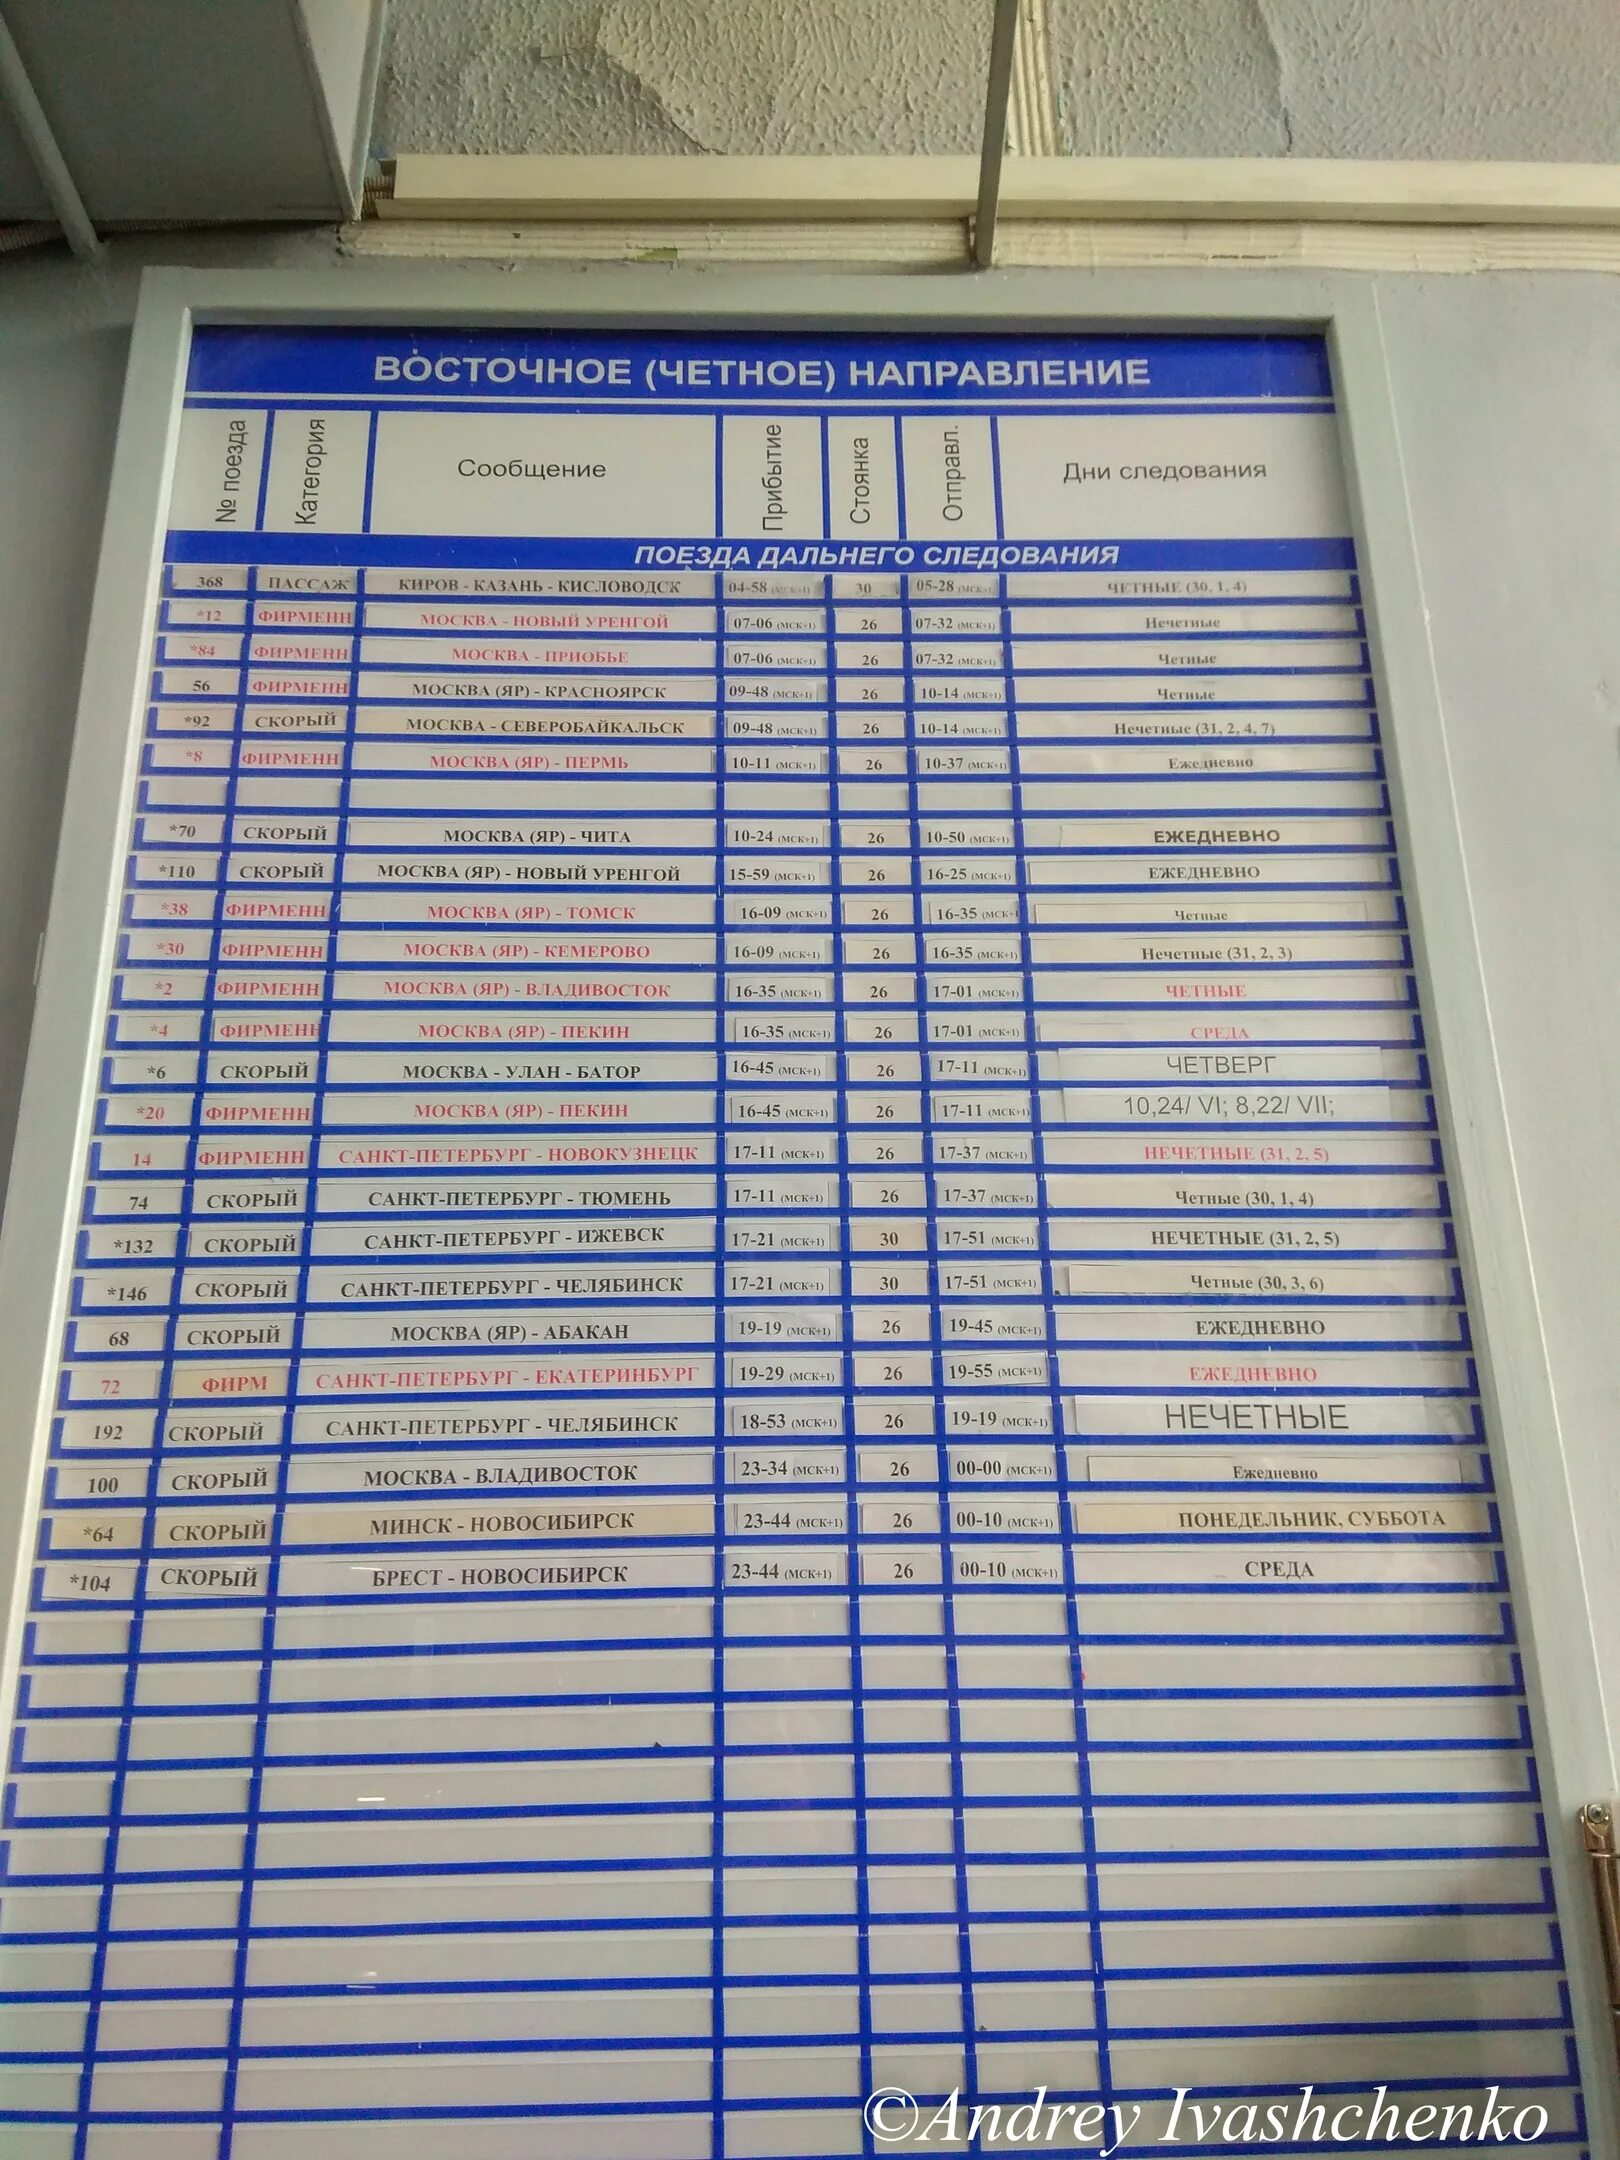 ВОСТОЧНОЕ (ЧЕТНОЕ) НАПРАВЛЕНИЕ
№ поезда Категория Сообщение Прибытие Стоянка Отправл. Дни следования
ПОЕЗДА ДАЛЬНЕГО СЛЕДОВАНИЯ
368 ПАССАЖ КИРОВ - КАЗАНЬ - КИСЛОВОДСК 04-58 (МСК+1) 30 05-28 (МСК+1) ЧЕТНЫЕ (30, 1, 4)
*12 ФИРМЕНН МОСКВА - НОВЫЙ УРЕНГОЙ 07-06 (МСК+1) 26 07-32 (МСК+1) Нечетные
*84 ФИРМЕНН МОСКВА - ПРИОБЬЕ 07-06 (МСК+1) 26 07-32 (МСК+1) Четные
56 ФИРМЕНН МОСКВА (ЯР) - КРАСНОЯРСК 09-48 (МСК+1) 26 10-14 (МСК+1) Четные
*92 СКОРЫЙ МОСКВА - СЕВЕРОБАЙКАЛЬСК 09-48 (МСК+1) 26 10-14 (МСК+1) Нечетные (31, 2, 4, 7)
*8 ФИРМЕНН МОСКВА (ЯР) - ПЕРМЬ 10-11 (МСК+1) 26 10-37 (МСК+1) Ежедневно
*70 СКОРЫЙ МОСКВА (ЯР) - ЧИТА 10-24 (МСК+1) 26 10-50 (МСК+1) ЕЖЕДНЕВНО
*110 СКОРЫЙ МОСКВА (ЯР) - НОВЫЙ УРЕНГОЙ 15-59 (МСК+1) 26 16-25 (МСК+1) ЕЖЕДНЕВНО
*38 ФИРМЕНН МОСКВА (ЯР) - ТОМСК 16-09 (МСК+1) 26 16-35 (МСК+1 Четные
*30 ФИРМЕНН МОСКВА (ЯР) - КЕМЕРОВО 16-09 (МСК+1) 26 16-35 (МСК+1) Нечетные (31, 2, 3)
*2 ФИРМЕНН МОСКВА (ЯР) - ВЛАДИВОСТОК 16-35 (МСК+1) 26 17-01 (МСК+1) ЧЕТНЫЕ
*4 ФИРМЕНН МОСКВА (ЯР) - ПЕКИН 16-35 (МСК+1) 26 17-01 (МСК+1) СРЕДА
*6 СКОРЫЙ МОСКВА - УЛАН - БАТОР 16-45 (МСК+1) 26 17-11 (МСК+1) ЧЕТВЕРГ
*20 ФИРМЕНН МОСКВА (ЯР) - ПЕКИН 16-45 (МСК+1) 26 17-11 (МСК+1) 10,24/ VI; 8,22/ VII;
14 ФИРМЕНН САНКТ-ПЕТЕРБУРГ - НОВОКУЗНЕЦК 17-11 (МСК+1) 26 17-37 (МСК+1) НЕЧЕТНЫЕ (31, 2, 5)
74 СКОРЫЙ САНКТ-ПЕТЕРБУРГ - ТЮМЕНЬ 17-11 (МСК+1) 26 17-37 (МСК+1) Четные (30, 1, 4)
*132 СКОРЫЙ САНКТ-ПЕТЕРБУРГ - ИЖЕВСК 17-21 (МСК+1) 30 17-51 (МСК+1) НЕЧЕТНЫЕ (31, 2, 5)
*146 СКОРЫЙ САНКТ-ПЕТЕРБУРГ - ЧЕЛЯБИНСК 17-21 (МСК+1) 30 17-51 (МСК+1) Четные (30, 3, 6)
68 СКОРЫЙ МОСКВА (ЯР) - АБАКАН 19-19 (МСК+1) 26 19-45 (МСК+1) ЕЖЕДНЕВНО
72 ФИРМ САНКТ-ПЕТЕРБУРГ - ЕКАТЕРИНБУРГ 19-29 (МСК+1) 26 19-55 (МСК+1) ЕЖЕДНЕВНО
192 СКОРЫЙ САНКТ-ПЕТЕРБУРГ - ЧЕЛЯБИНСК 18-53 (МСК+1) 26 19-19 (МСК+1) НЕЧЕТНЫЕ
100 СКОРЫЙ МОСКВА - ВЛАДИВОСТОК 23-34 (МСК+1) 26 00-00 (МСК+1) Ежедневно
*64 СКОРЫЙ МИНСК - НОВОСИБИРСК 23-44 (МСК+1) 26 00-10 (МСК+1) ПОНЕДЕЛЬНИК, СУББОТА
*104 СКОРЫЙ БРЕСТ - НОВОСИБИРСК 23-44 (МСК+1) 26 00-10 (МСК+1) СРЕДА
©Andrey Ivashchenko